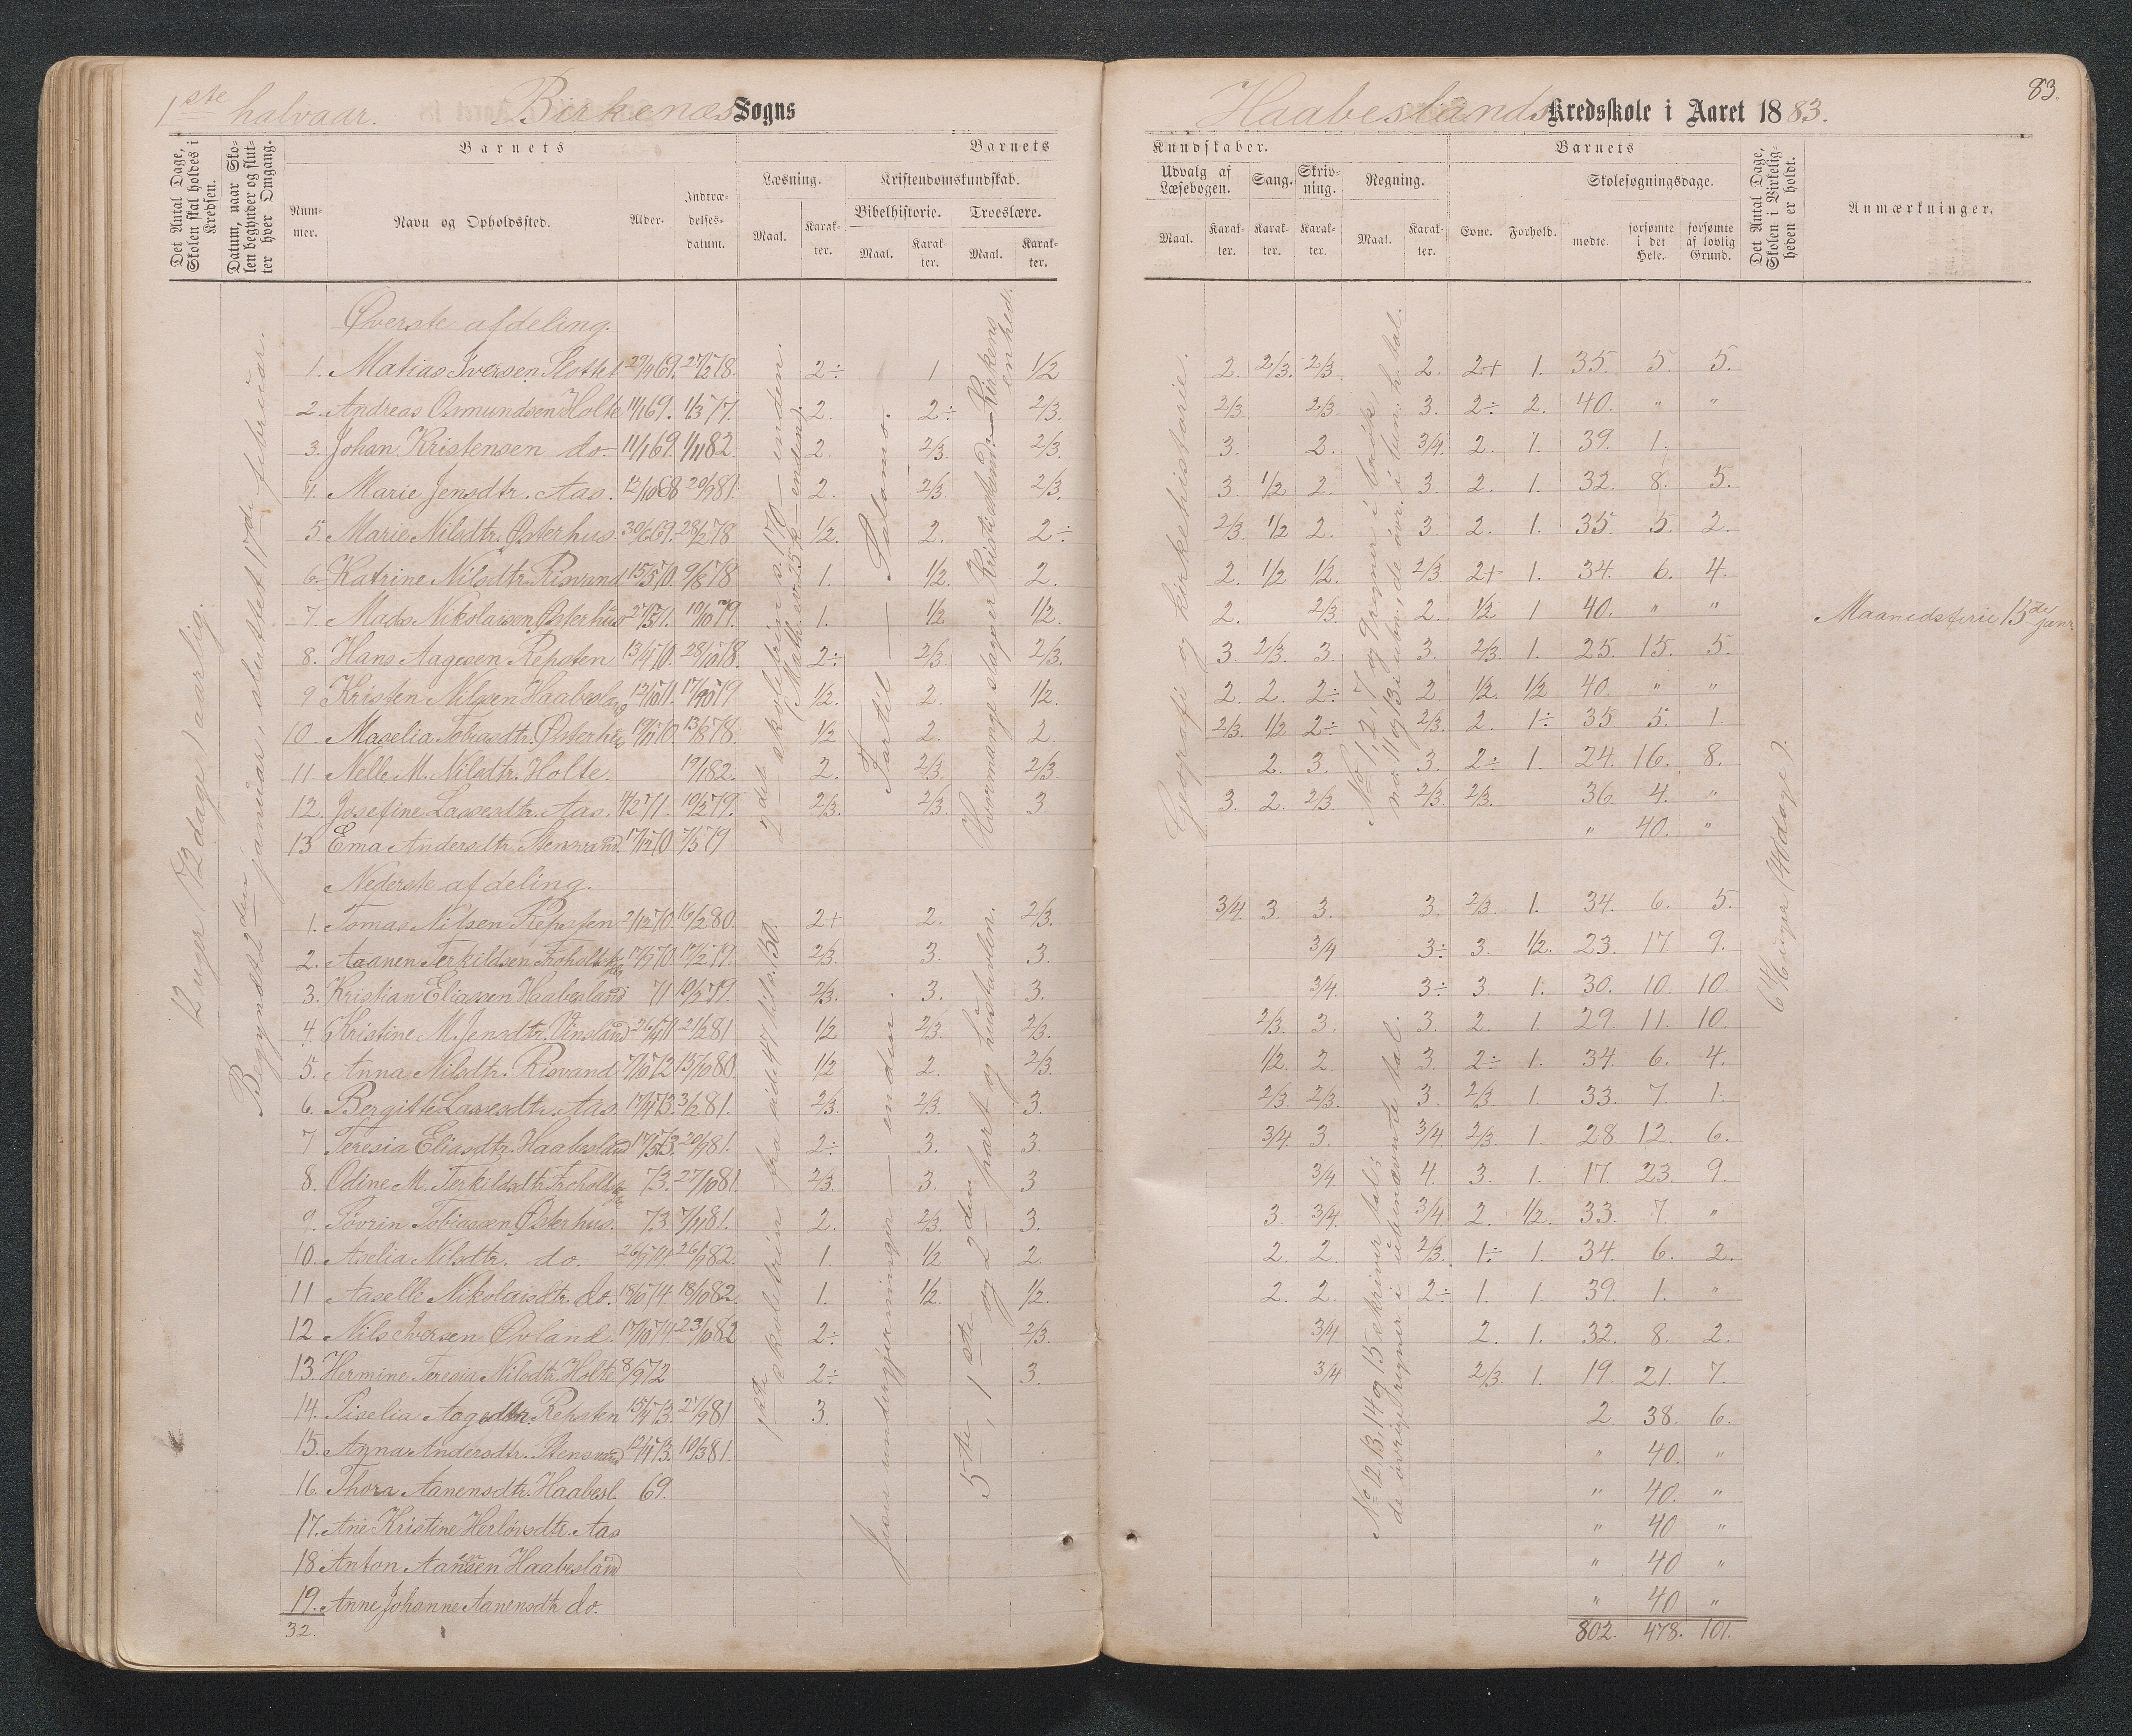 83.
1ste halvaar. Birkenæs Sogns Haabeslands Kredsskole i Aaret 1883.
Det Antal Dage, Skolen skal holdes i Kredsen.
Datum, naar Skolen begynder og slutter hver Omgang.
Barnets
Barnets
Kundskaber.
Barnets
Nummer.
Navn og Opholdssted.
Alder.
Indtrædelsesdatum.
Læsning.
Kristendomskundskab.
Bibelhistorie.
Troeslære.
Maal.
Karakter.
Maal.
Karakter.
Maal.
Karakter.
Udvalg af Læsebogen.
Sang.
Skrivning.
Regning.
Maal.
Karakter.
Karakter.
Karakter.
Maal.
Karakter.
Evne.
Forhold.
Skolesøgningsdage.
mødte.
forsømte i det Hele.
forsømte af lovlig Grund.
Det Antal Dage, Skolen i Virkeligheden er holdt.
Anmærkninger.
12 uger (72 dage) aarlig.
Begyndt 2den januar, sluttet 17de februar.
2det skoletrin s. 170 — enden.
(Math. ev. 25 k — enden)
Fortil — Salomo.
Hvormange slags er Kristi stand? — Kirkens enhed.
Geografi og kirkehistorie.
No 1, 2, 7 og 9 regner i brøk,
no. 11 og 13 i ubn., de øvr. i ben. h. tal.
6 4/6 uger (40 dage).
Øverste afdeling.
1. Matias Iversen Slottet 29/4 69. 27/2 78. 2÷ 1 1/2 2. 2/3. 2/3 2. 2+ 1. 35. 5. 5.
2. Andreas Osmundsen Holte 11/1 69. 1/3 77. 2. 2÷ 2/3. 2/3 2/3. 3. 2÷ 2. 40. " "
3. Johan Kristensen do. 11/1 69. 1/11 82. 2. 2/3 2/3. 3. 2. 3/4. 2. 1. 39. 1.
4. Marie Jensdtr. Aas. 12/10 68 20/9 81. 2. 2/3. 2/3. 3. 1/2 2. 3. 2. 1. 32. 8. 5.
5. Marie Nilsdtr. Østerhus. 30/6 69. 28/2 78 1/2. 2. 2÷ 2/3 1/2 2. 3 2. 1. 35. 5. 2.
6. Katrine Nilsdtr. Risvand 15/5 70. 9/8 78 1. 1/2. 2. 2. 1/2 1/2. 2/3 2+ 1. 34. 6. 4.
7. Mads Nikolaisen Østerhus 27/5 71. 10/10 79. 1. 1/2 1/2. 2. 2/3. 2. 1/2 1 40. " " Maanedsferie 15de janr.
8. Hans Aagesen Repsten 13/4 70. 28/10 78. 2÷ 2/3. 2/3. 3. 2/3. 3. 3. 2/3. 1. 25. 15. 5.
9 Kristen Nilsen Haabesland 13/10 71. 17/10 79 1/2. 2. 1/2. 2. 2. 2÷ 2 1/2. 1/2 40. " "
10. Maselia Tobiasdtr. Østerhus 19/11 70. 13/8 78. 1/2 2. 2. 2/3. 1/2 2÷ 2/3. 2. 1÷ 35 5. 1.
11 Nelle M. Nilsdtr. Holte. 19/1 82. 2. 2/3 2/3. 2. 3. 3. 2÷ 1. 24. 16. 8.
12. Josefine Lassesdtr. Aas. 4/2 71. 10/3 79. 2/3. 2/3. 3. 3. 2. 2/3 2/3 2/3. 36. 4. "
13 Ema Andersdtr. Stensvand. 17/12 70 7/3 79 " 40. "
Nederste afdeling.
1. Tomas Nilsen Repsten 2/12 70. 16/2 80. 2+ 2. 2/3. 3/4. 3. 3. 3. 2/3. 1. 34. 6. 5.
2. Aaanen Terkildsen 17/9 70. 17/2 79. 2/3. 3. 3. 3/4 3÷ 3. 1/2. 23. 17. 9.
3. Kristian Eliassen Haabesland 71 10/3 79. 2/3. 3. 3. 3/4. 3÷ 3. 1. 30. 10. 10.
4. Kristine M. Jensdtr. 26/4 71 21/2 81 1/2 2/3 2/3. 2/3. 3. 3. 2. 1. 29. 11. 10.
5. Anna Nilsdtr. Risvand 7/10 72 15/10 80. 1/2 2. 2/3. 1/2. 2. 3. 2÷ 1. 34. 6. 4.
6. Bergitte Lassesdtr. Aas. 17/4 73. 3/2 81. 2/3. 2/3. 3. 2/3. 2/3. 3. 2/3 1. 33. 7. 1.
7 Teresia Eliasdtr. Haabesland 17/5 73. 20/9 81. 2÷ 3. 3. 3/4. 3. 3/4 2/3. 1. 28 12. 6.
8. Odine M. Terkildsdtr. 73. 27/10 81. 2/3. 3. 3 3/4. 4. 3. 1. 17. 23. 9.
9. Tøvrin Tobiassen Østerhus. 73 7/11 81. 2. 2/3. 3. 3. 3/4. 3/4. 2. 1/2. 33. 7. "
10. Aselia Nilsdtr. do. 26/7 74. 26/9 82. 1. 1/2 2 2. 2. 2/3. 1÷ 1. 34. 6. 2.
11 Aaselle Nikolaisdtr. do. 18/6 74 18/10 82. 1. 1/2. 1/2. 2. 2. 2÷ 1. 1. 39. 1. "
12 Nils Iversen Øvland. 17/10 74. 23/10 82 2÷ 2/3. 3/4. 2. 1. 32. 8. 2.
13. Hermine Teresia Nilsdtr. Holte 8/9 72 2÷ 3. 3/4 2/3. 1. 19. 21. 7.
14. Siselia Aagesdtr. Repsten 15/4 73. 27/9 81 3. 2. 38. 6.
15. Anna Andersdtr. Stensvand 12/4 73. 10/3 81. " 40. "
16. Thora Aanensdtr. Haabesl. 69. " 40. "
17. Ane Kristine Herlovsdtr. Aas " 40 "
18 Anton Aanensen Haabesland " 40 "
19. Anne Johanne Aanensdtr do. " 40 "
32. 802. 478. 101.
1ste skoletrin fra side 47 til s. 150.
Jesu undergjerninger — enden.
5te, 1ste og 2den part og hustavlen.
No 12, 13, 14 og 15 skriver tal;
de øvrige regner i ubenævnte tal.